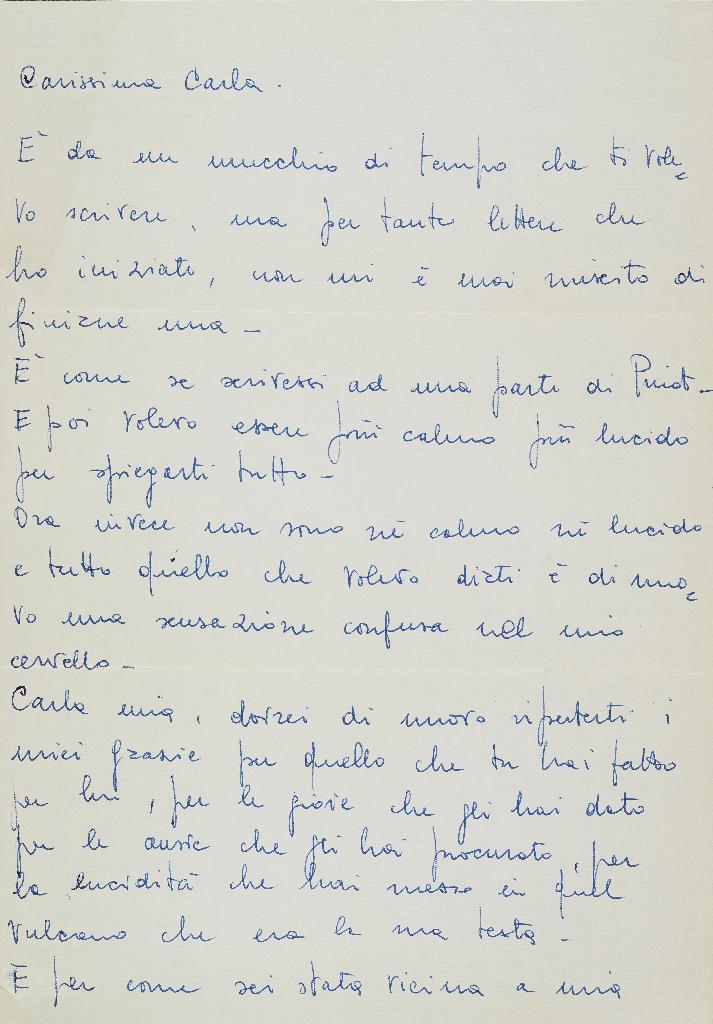 Carissima Carla.
È da un mucchio di tempo che ti vole=
vo scrivere, ma per tante lettere che
ho iniziato, non mi è mai riuscito di
finirne una -
È come se scrivessi ad una parte di Puiot -
E poi volevo essere più calmo più lucido
per spiegarti tutto -
Ora invece non sono nè calmo nè lucido
e tutto quello che volevo dirti è di nuo=
vo una sensazione confusa nel mio
cervello -
Carla mia, dovrei di nuovo ripeterti i
miei grazie per quello che tu hai fatto
per lui, per le gioie che gli hai dato
per le ansie che gli hai procurato, per
la lucidità che hai messo in quel
vulcano che era la sua testa -
E per come sei stata vicina a mia